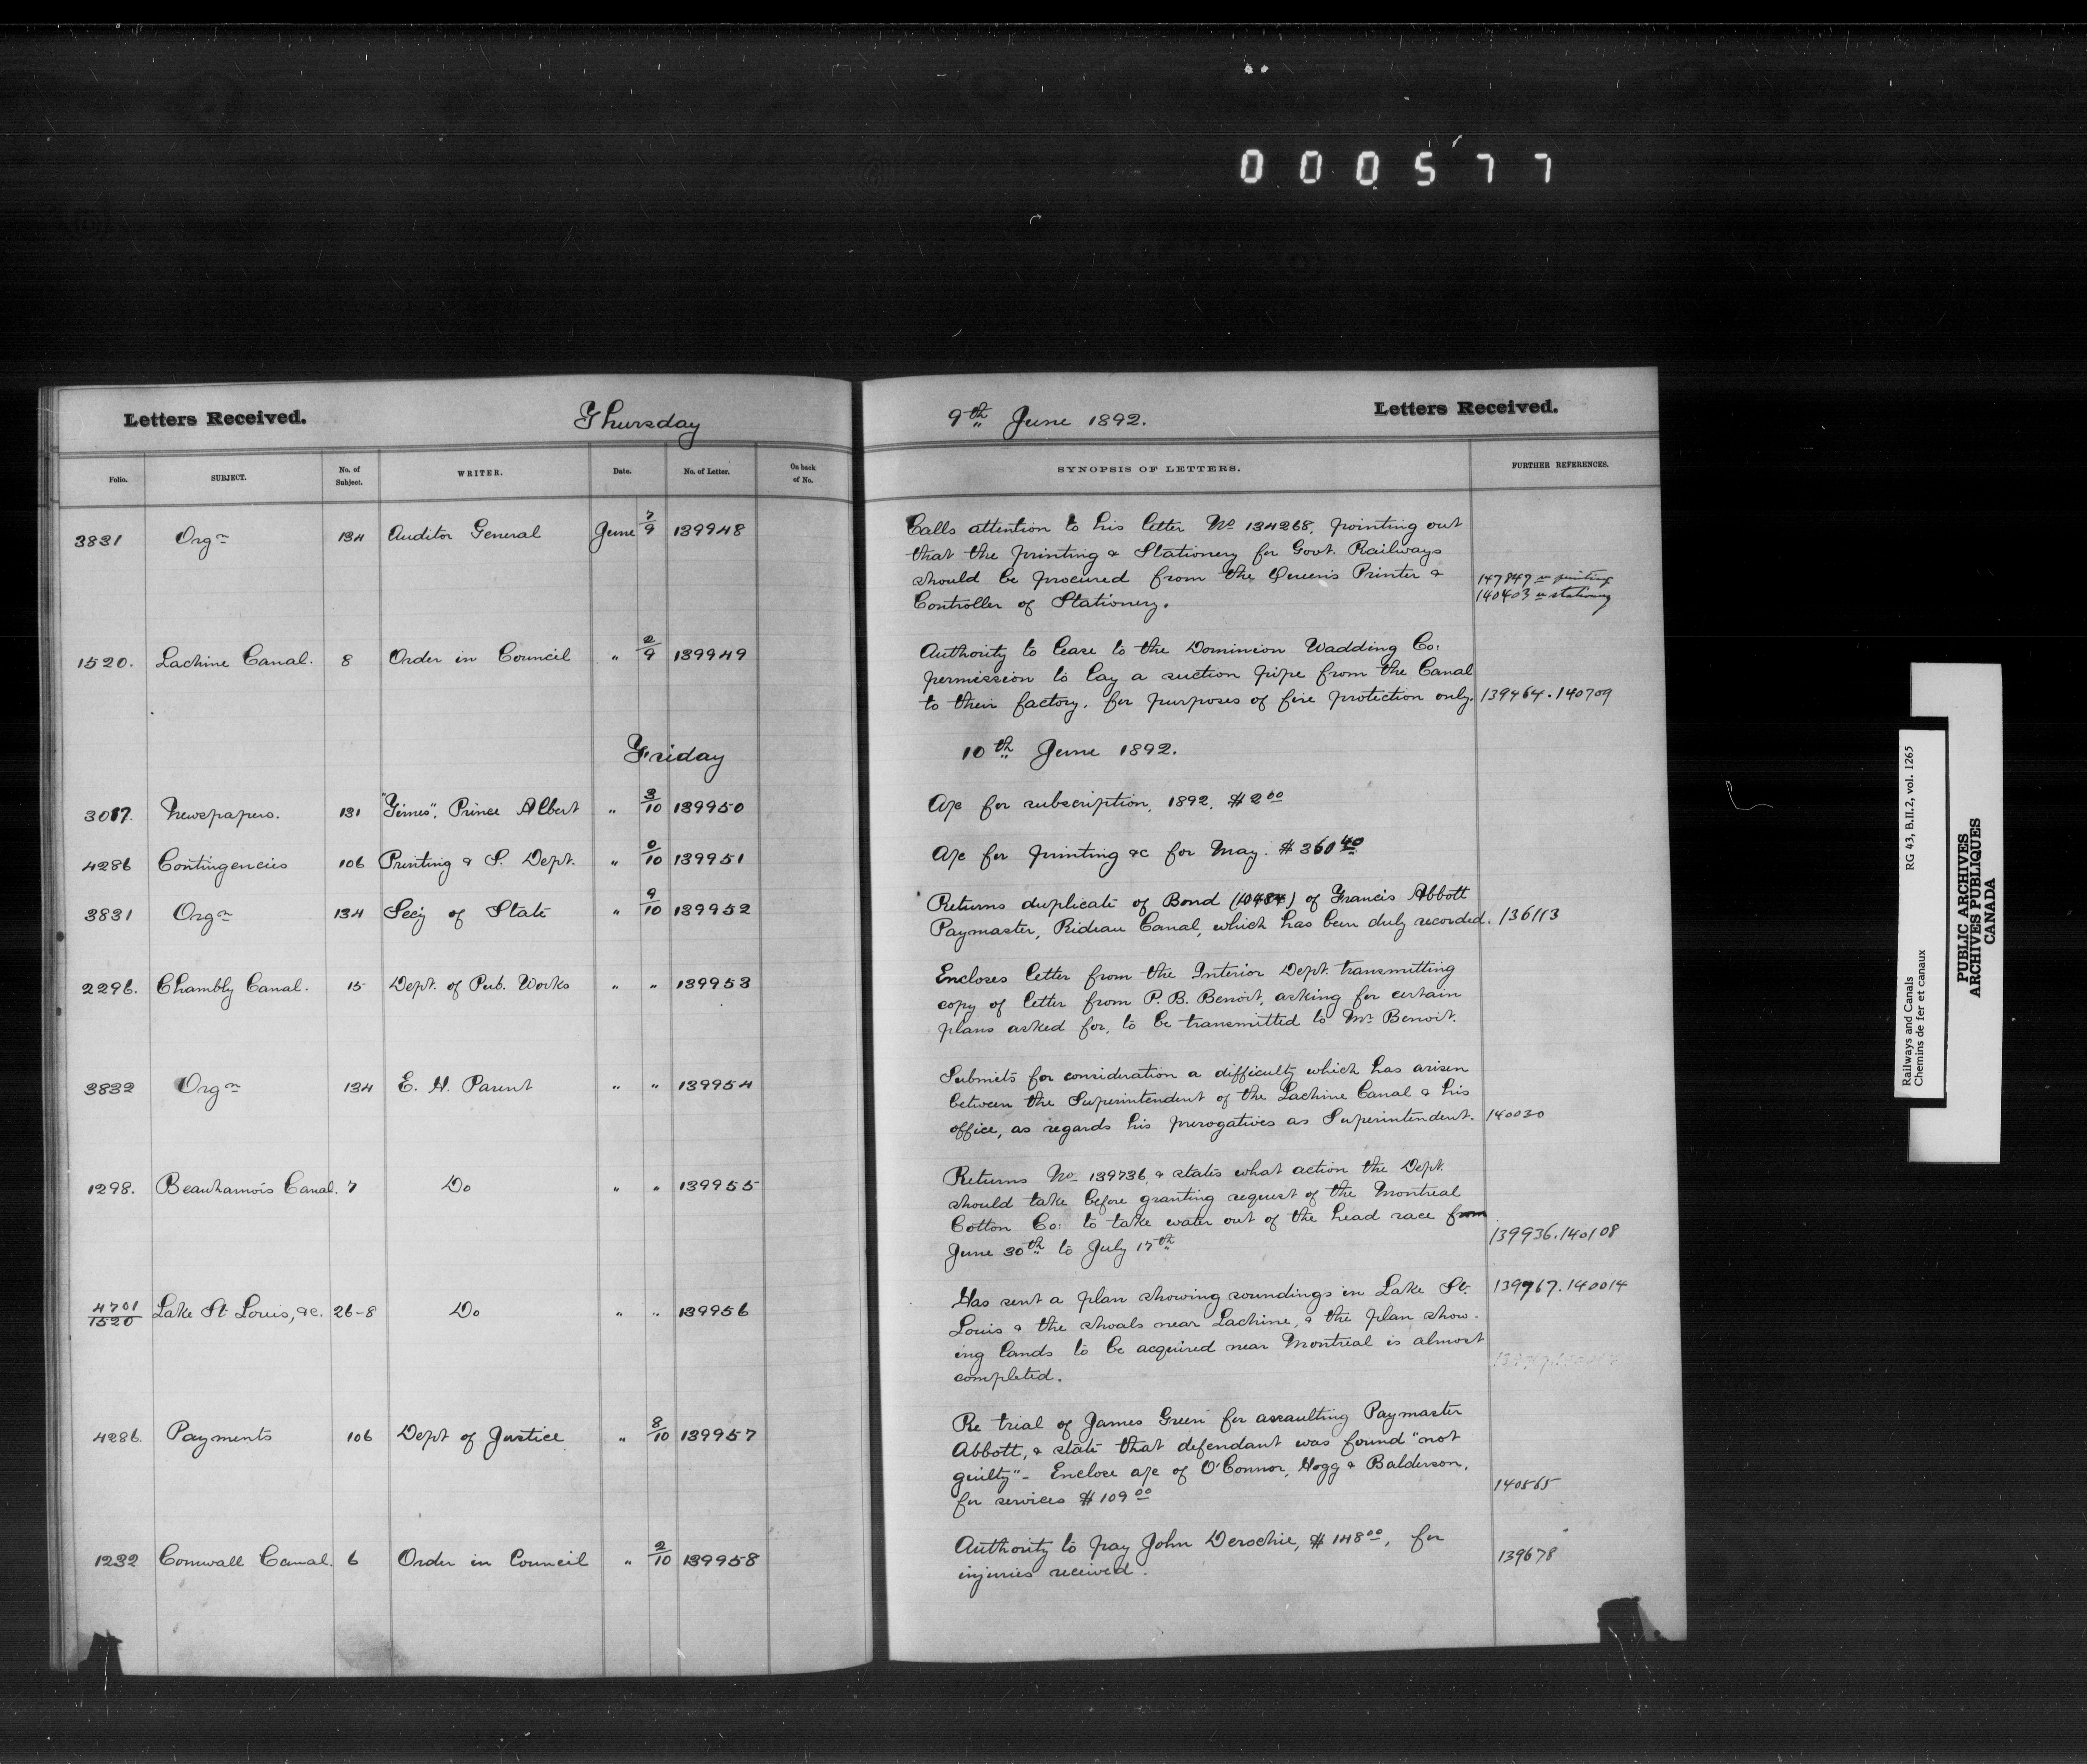 000577
Letters Received. Thursday 9th June 1892. Letters Received.
Folio. SUBJECT. No. of Subject. WRITER. Date. No. of Letter. On back of No. SYNOPSIS OF LETTERS. FURTHER REFERENCES.
3831 Orgn 134 Auditor General June 7/9 139948 Calls attention to his letter No 134268, pointing out
that the printing & Stationery for Govt. Railways
should be procured from the Queen's Printer & 147847 re printing
Controller of Stationery. 140403 re stationery
1520. Lachine Canal. 8 Order in Council " 2/9 139949 Authority to lease to the Dominion Wadding Co:
permission to lay a suction pipe from the Canal
to their factory, for purposes of fire protection only. 139464.140709
Friday 10th June 1892.
3017. Newspapers. 131 "Times", Prince Albert " 3/10 139950 A/c for subscription, 1892. $2 00
4286 Contingencies 106 Printing & S. Dept. " 0/10 139951 A/c for printing &c for May. $360 40
3831 Orgn 134 Secy of State " 9/10 139952 Returns duplicate of Bond (10484) of Francis Abbott
Paymaster, Rideau Canal, which has been duly recorded. 136113
2296. Chambly Canal. 15 Dept. of Pub. Works " " 139953 Encloses letter from the Interior Dept. transmitting
copy of letter from P. B. Benoit, asking for certain
plans asked for, to be transmitted to Mr Benoit.
3832 Orgn 134 E. H. Parent " " 139954 Submits for consideration a difficulty which has arisen
between the Superintendent of the Lachine Canal & his
office, as regards his prerogatives as Superintendent. 140030
1298. Beauharnois Canal. 7 Do " " 139955 Returns No 139736, & states what action the Dept.
should take before granting request of the Montreal
Cotton Co: to take water out of the head race from
June 30th to July 17th 139936.140108
4701/1520 Lake St Louis, &c. 26-8 Do " " 139956 Has sent a plan showing soundings in Lake St. 139767.140014
Louis & the shoals near Lachine, & the plan show-
ing lands to be acquired near Montreal is almost
completed.
4286. Payments 106 Dept of Justice " 8/10 139957 Re trial of James Green for assaulting Paymaster
Abbott, & state that defendant was found "not
guilty" - Enclose a/c of O'Connor, Hogg & Balderson,
for services $109 00 140565
1232 Cornwall Canal. 6 Order in Council " 2/10 139958 Authority to pay John Derochie, $148 00, for
injuries received. 139678
Railways and Canals RG 43, B.II.2, vol. 1265
Chemins de fer et canaux
PUBLIC ARCHIVES
ARCHIVES PUBLIQUES
CANADA